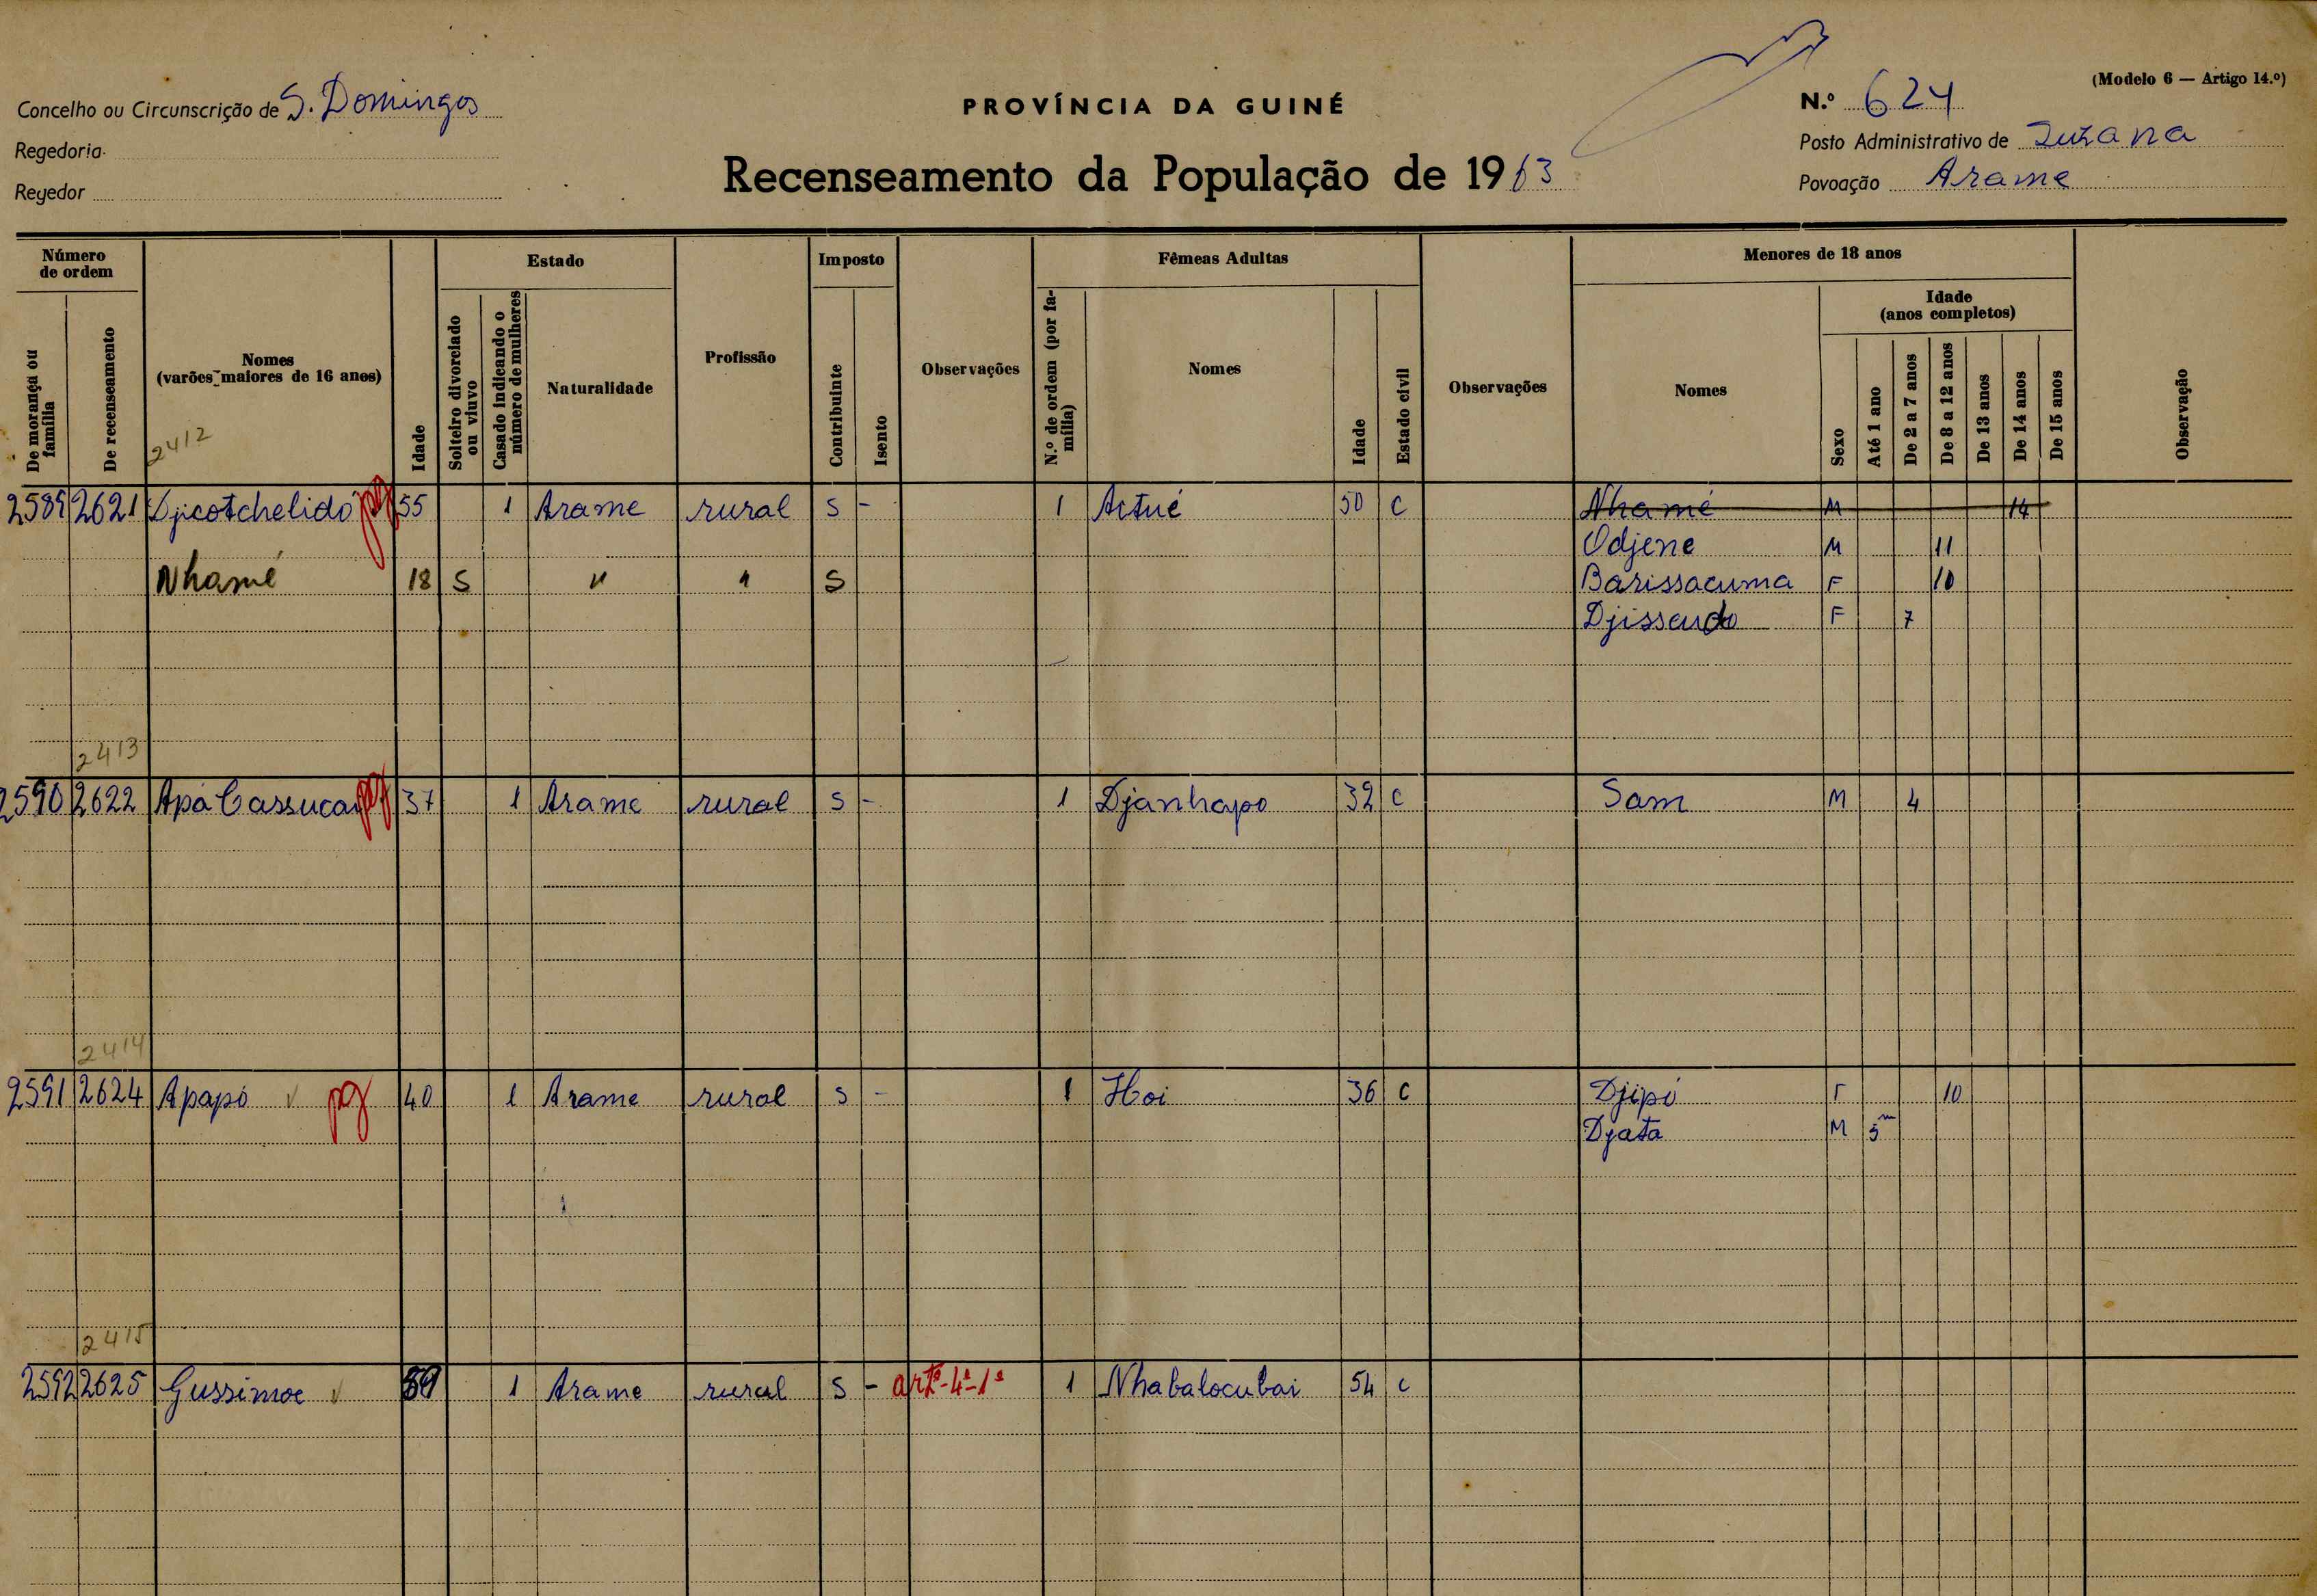 (Modelo 6 — Artigo 14.º)
Concelho ou Circunscrição de S. Domingos
PROVÍNCIA DA GUINÉ
N.º 624
Regedoria
Posto Administrativo de Suzana
Recenseamento da População de 1963
Regedor
Povoação Arame
Número de ordem
Estado
Imposto
Fêmeas Adultas
Menores de 18 anos
De morança ou família
De recenseamento
Nomes (varões maiores de 16 anos)
Idade
Solteiro divorciado ou viuvo
Casado indicando o número de mulheres
Naturalidade
Profissão
Contribuinte
Isento
Observações
N.º de ordem (por família)
Nomes
Idade
Estado civil
Observações
Nomes
Idade (anos completos)
Sexo
Até 1 ano
De 2 a 7 anos
De 8 a 12 anos
De 13 anos
De 14 anos
De 15 anos
Observação
2412
2589 2621 Djicotchelidó pg 55 1 Arame rural S - 1 Actué 50 C Nhamé M 14
Odjene M 11
Nhamé 18 S " " S Barissacuma F 10
Djissendo F 7
2413
2590 2622 Apá Cassucai pg 37 1 Arame rural S - 1 Djanhapo 32 C Sam M 4
2414
2591 2624 Apapó pg 40 1 Arame rural S - 1 Hoi 36 C Djipó F 10
Djata M 5m
2415
2592 2625 Gussimoe 59 1 Arame rural S - artº-4º-1º 1 Nhabalocubai 54 C